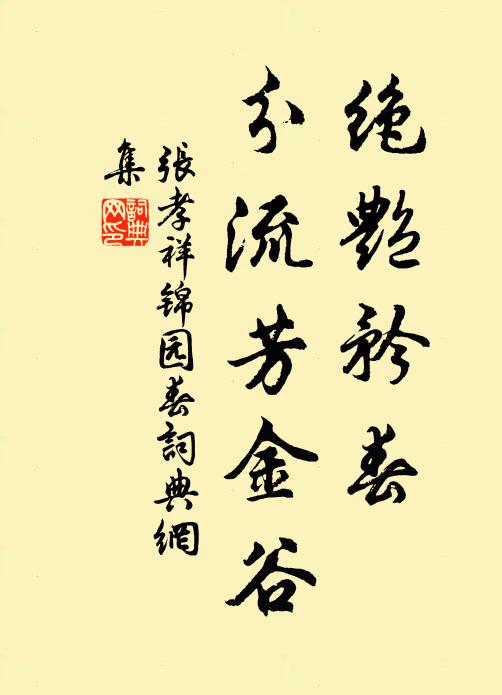 绝艳矜春
分流芳金谷
張孝祥锦园春詞典網
集
詞典
网印